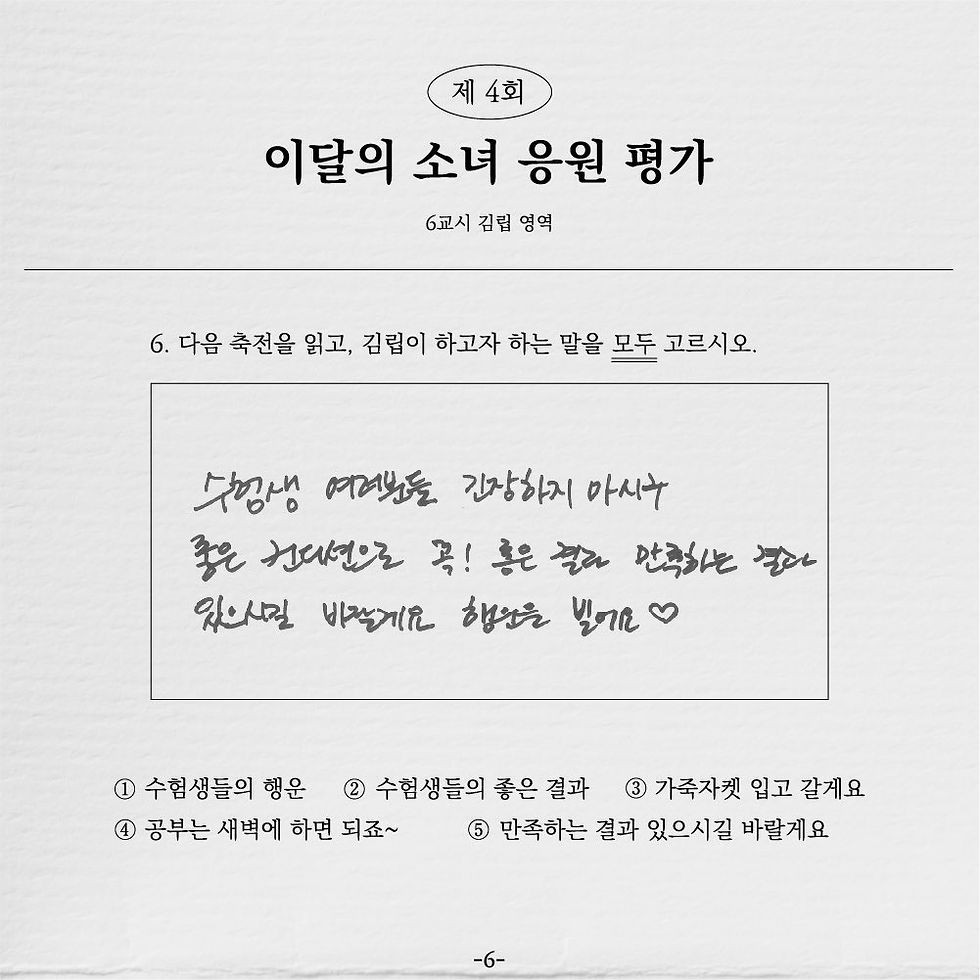 제 4회
이달의 소녀 응원 평가
6교시 김립 영역
6. 다음 축전을 읽고, 김립이 하고자 하는 말을 모두 고르시오.
수험생 여러분들 긴장하지 마시구
좋은 컨디션으로 꼭! 좋은 결과 만족하는 결과
있으시길 바랄게요 행운을 빌어요♡
① 수험생들의 행운 ② 수험생들의 좋은 결과 ③ 가죽자켓 입고 갈게요
④ 공부는 새벽에 하면 되죠~ ⑤ 만족하는 결과 있으시길 바랄게요
-6-